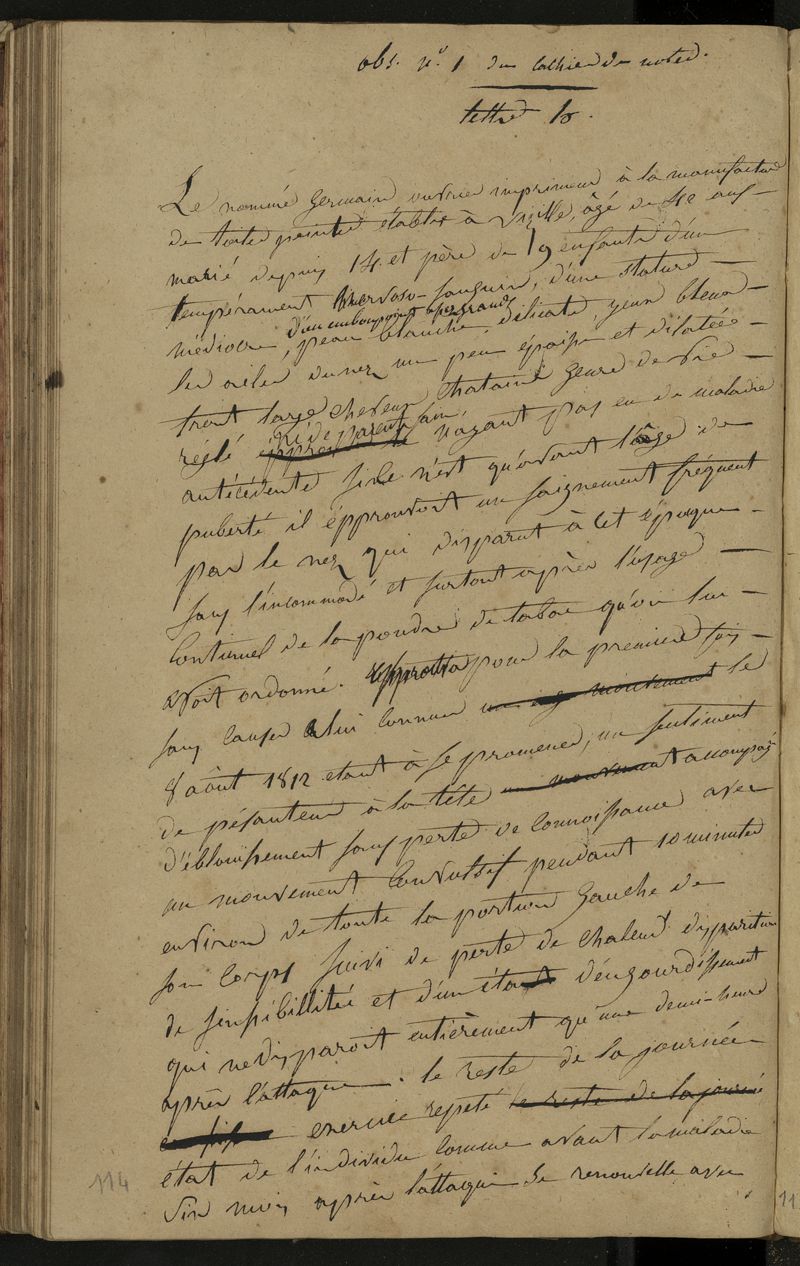 obs. n° 1 du cathier de notes.
lettre b.
Le nommé Germain ouvrier imprimeur à la manufacture
de toiles peintes établie à Vizille, âgé de 42 ans
marié depuis 14. et père de 19 enfants d'un
tempérament nervoso-sanguin, d'une stature
d'un embonpoint assez grand
médiocre, peau blanche, délicate, yeux bleus
les ailes du nez un peu épaisse et dilatées
front large cheveux chatains genre de vie
né de parents sains
réglé n'ayant pas eu de maladie
antécédente si ce n'est qu'avant l'âge de
puberté il épprouvoit un saignement fréquent
par le nez qui disparut à cet époque
sans l'incommodé et surtout après l'usage
continuel de la poudre de tabac qu'on lui
avoit ordonné. epprouva pour la premiere fois
sans causes à lui connue un mouvement le
8 août 1812 etant à se promener, un sentiment
de pésanteur à la tête un mouvement accompagé
d'éblouissement sans perte de connoissance avec
un mouvement convulsif pendant 10 minutes
environ de toute la portion gauche de
son corps suivi de perte de chaleur disparution
de sensibillitée et d'un état d'engourdissement
qui ne disparoit entièrement qu'une demi-heure
après l'attaque. le reste de la journée
exercice repeté le reste de la journée
état de l'individu comme avant la maladie
Six mois après l'attaque se renouvelle avec
114